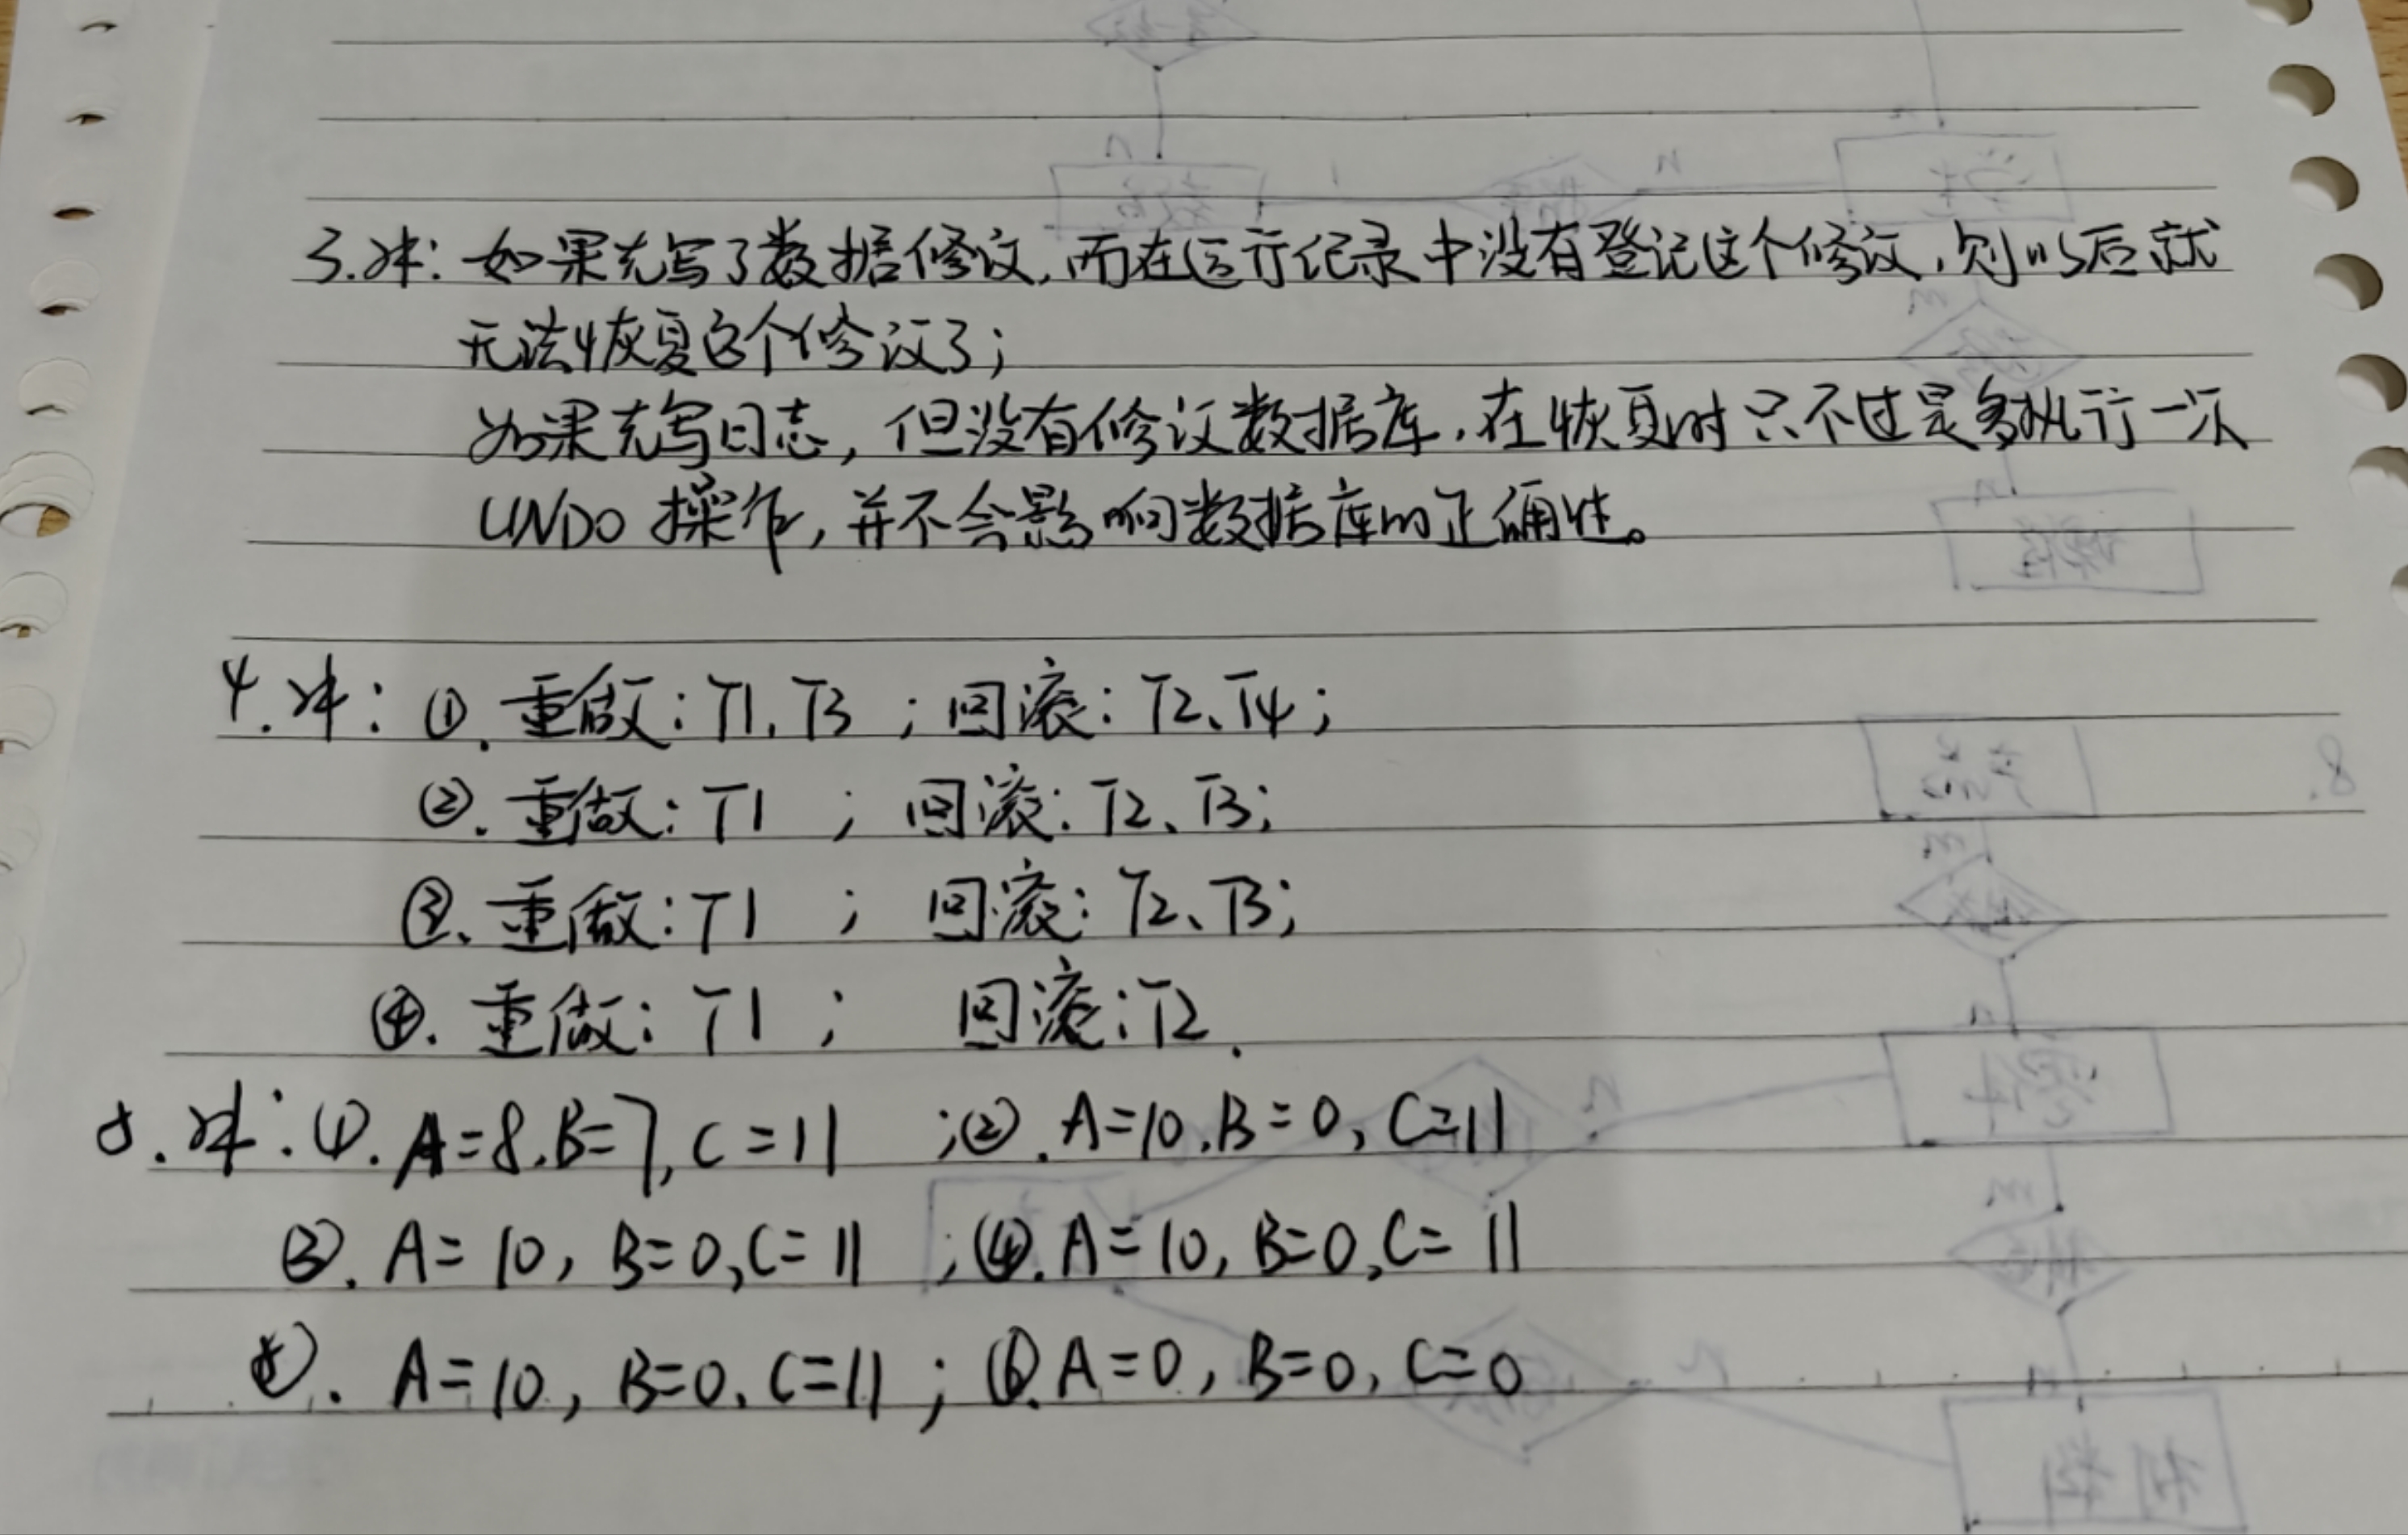 3.冰:如果先写了数据修改,而在运行记录中没有登记这个修改,则以后就
无法恢复这个修改了;
如果先写日志,但没有修改数据库,在恢复时只不过是多执行一次
UNDO 操作,并不会影响数据库的正确性。
4.冰:①.重做:T1、T3 ;回滚:T2、T4;
②.重做:T1 ; 回滚:T2、T3;
③.重做:T1 ; 回滚:T2、T3;
④.重做:T1 ; 回滚:T2.
5.冰:①.A=8,B=7,C=11 ;②.A=10,B=0,C=11
③.A=10,B=0,C=11 ;④.A=10,B=0,C=11
⑤.A=10,B=0,C=11 ;⑥.A=0,B=0,C=0
8.